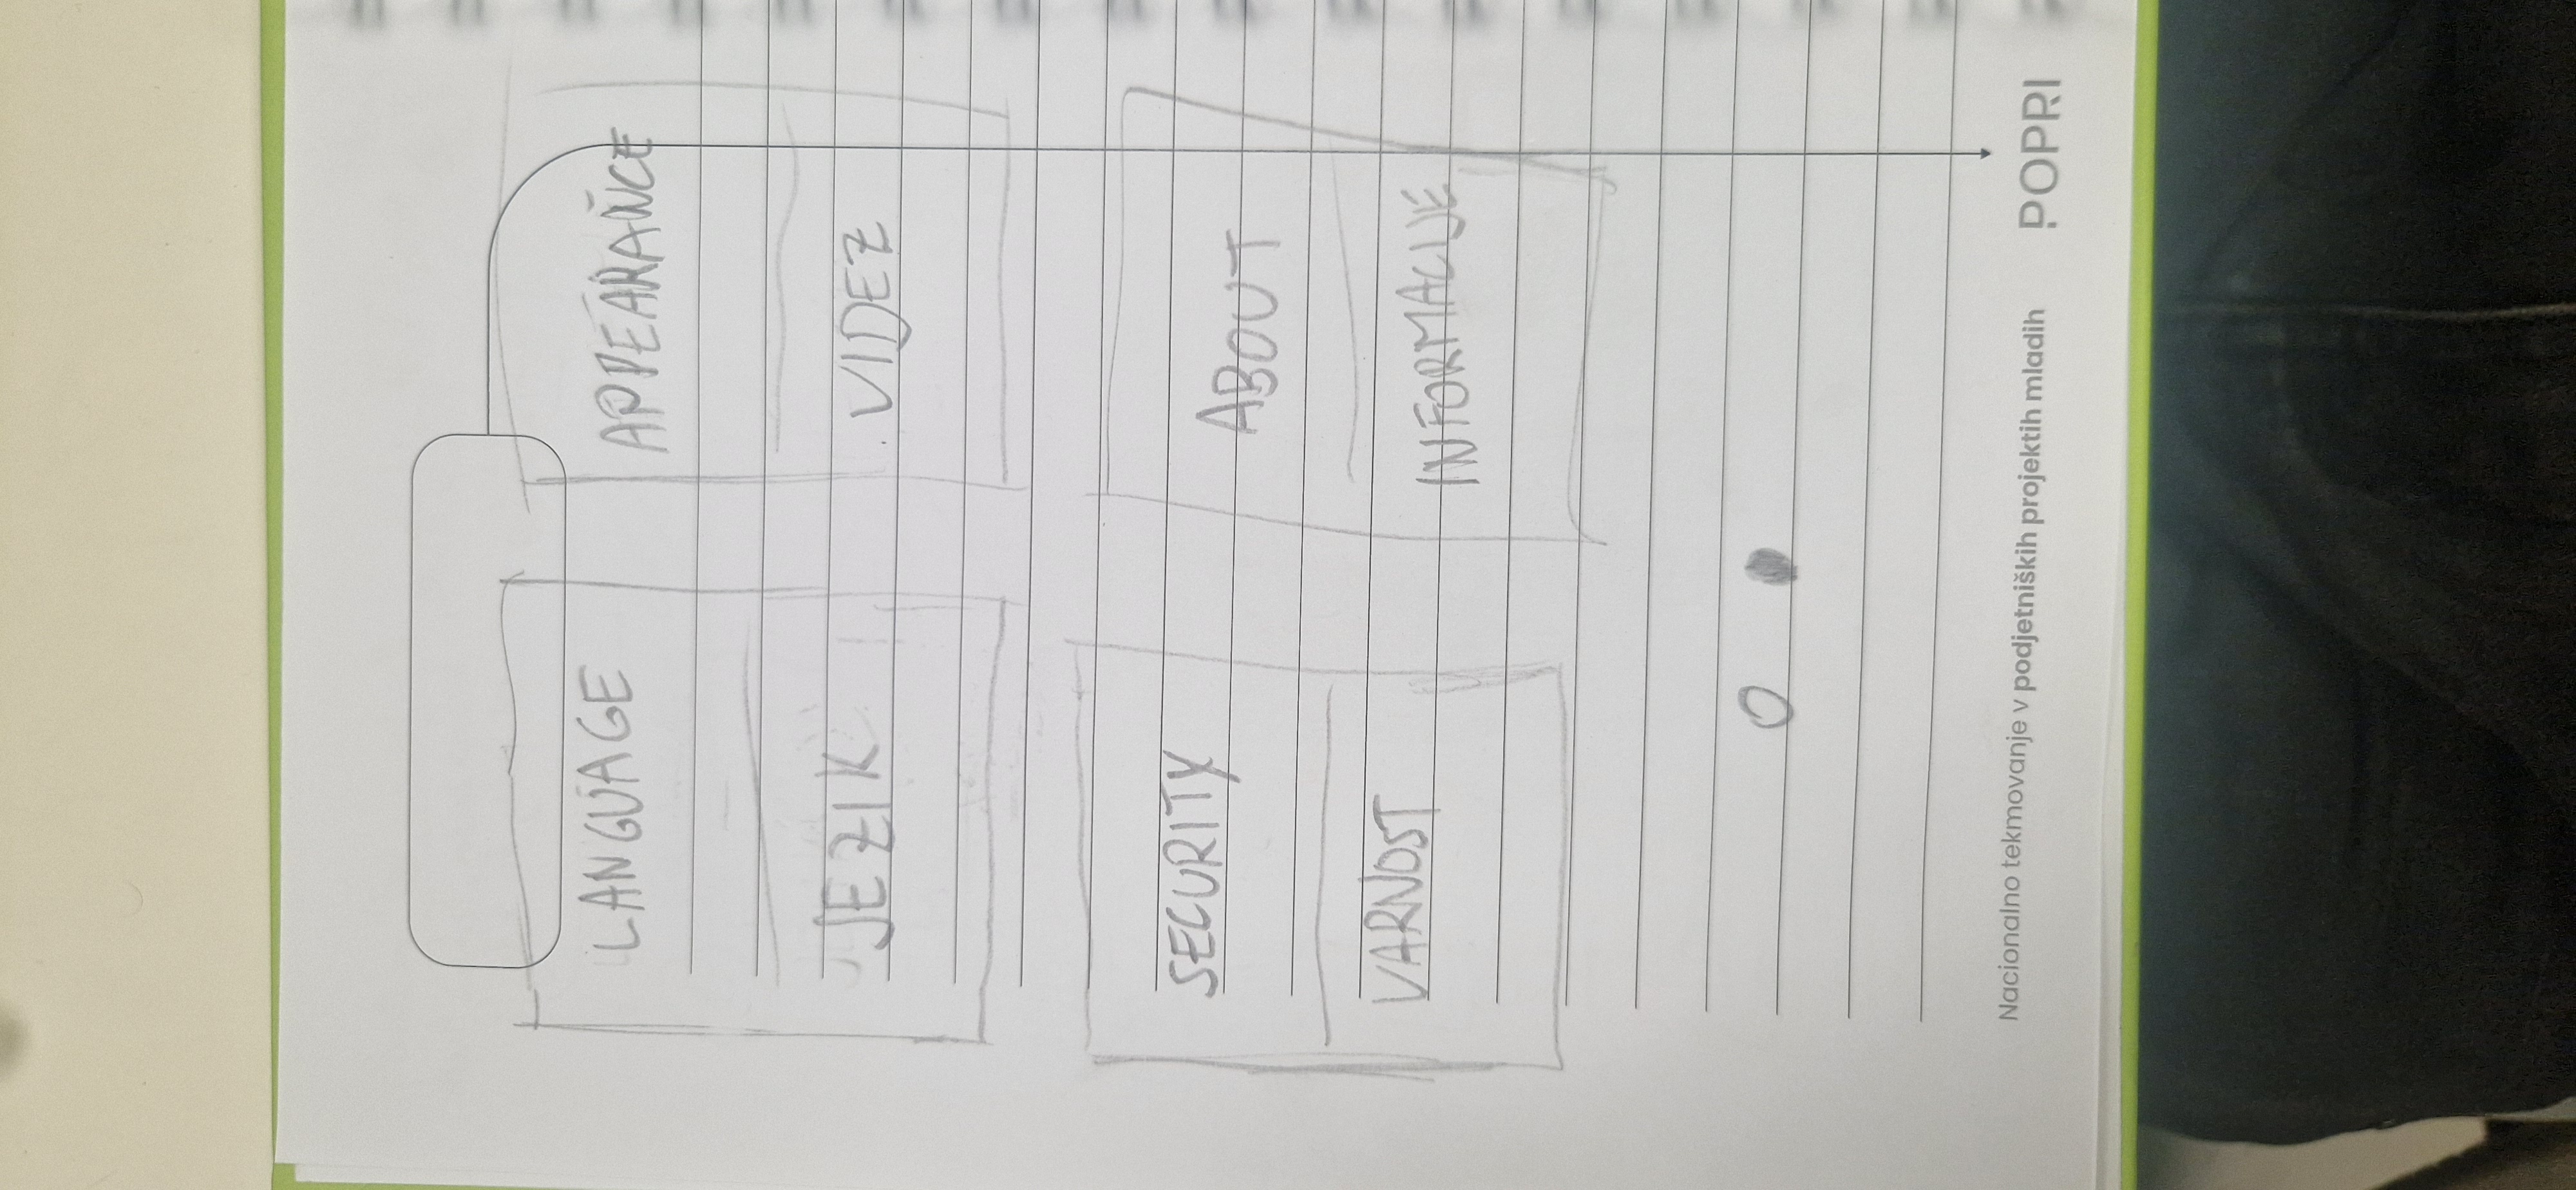 LANGUAGE
APPEARANCE
JEZIK
VIDEZ
SECURITY
ABOUT
VARNOST
INFORMACIJE
Nacionalno tekmovanje v podjetniških projektih mladih
POPRI